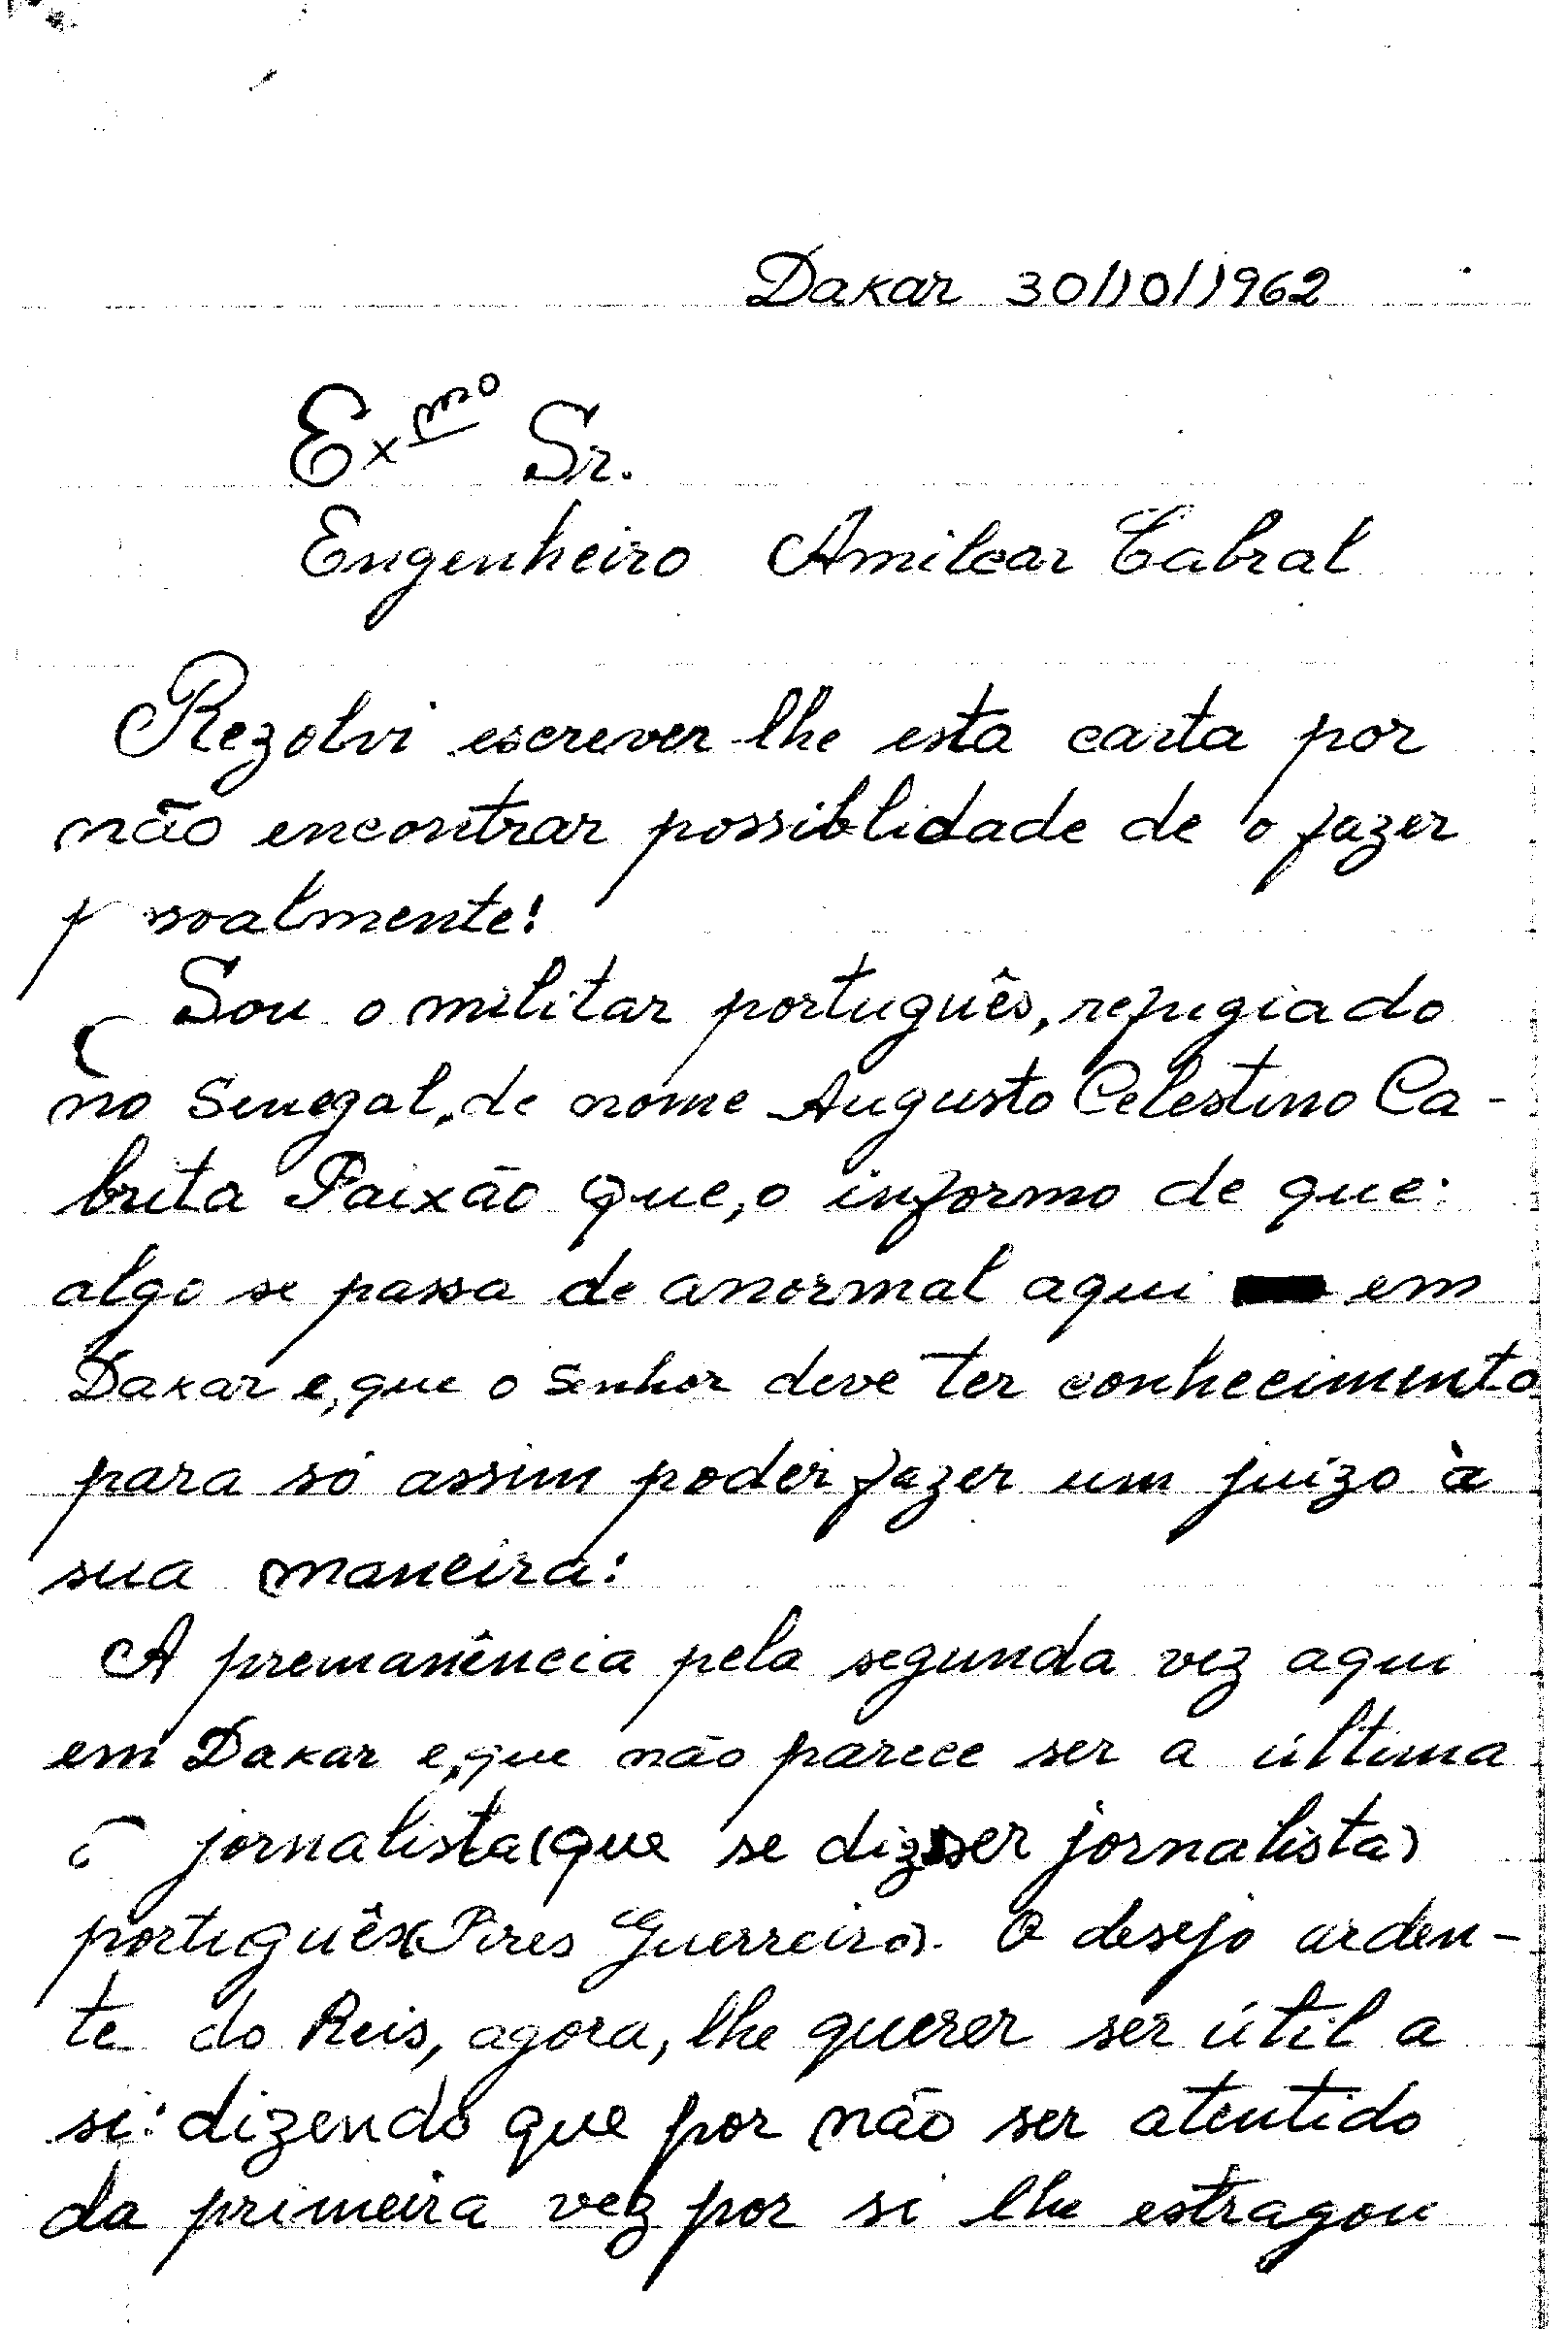 Dakar 30/10/1962
Exmo Sr.
Engenheiro Amilcar Cabral
Rezolvi escrever-lhe esta carta por
não encontrar possiblidade de o fazer
p soalmente!
Sou o militar português, refugiado
no Senegal, de nome Augusto Celestino Ca-
brita Paixão que, o informo de que:
algo se passa de anormal aqui em
Dakar e, que o senhor deve ter conhecimento
para só assim poder fazer um juízo à
sua maneira:
A premanência pela segunda vez aqui
em Dakar e, que não parece ser a última
jornalista (que se diz ser jornalista)
português (Pires Guerreiro). O desejo arden-
te do Reis, agora, lhe querer ser útil a
si: dizendo que por não ser atentido
da primeira vez por si lhe estragou